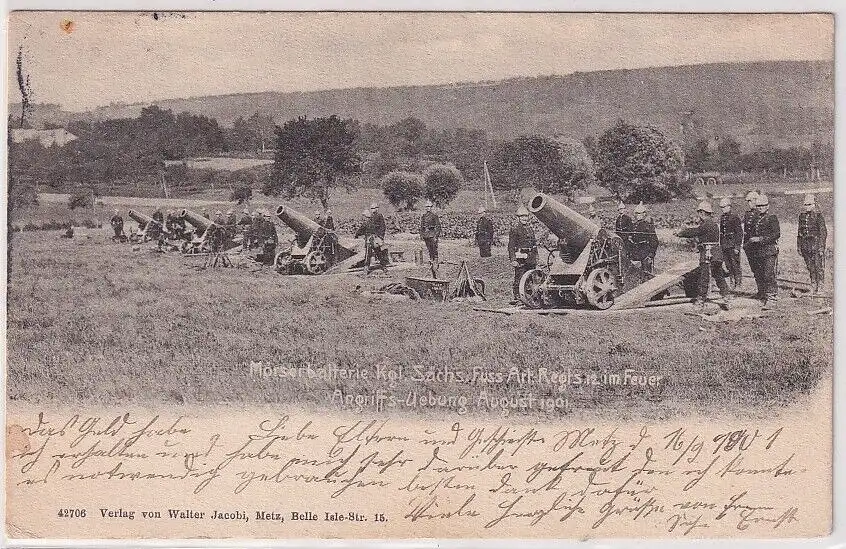 Mörserbatterie Kgl. Sächs. Fuss Art. Regts. 12. im Feuer
Angriffs-Uebung August 1901
Das Geld habe
ich erhalten und habe mich sehr darüber gefreut den ich konnte
es notwendig gebrauchen besten Dank dafür
Liebe Eltern und Geschwister Metz d 16/9 1901
Viele herzliche Grüße von Ihrem
Ernst
42706 Verlag von Walter Jacobi, Metz, Belle Isle-Str. 15.